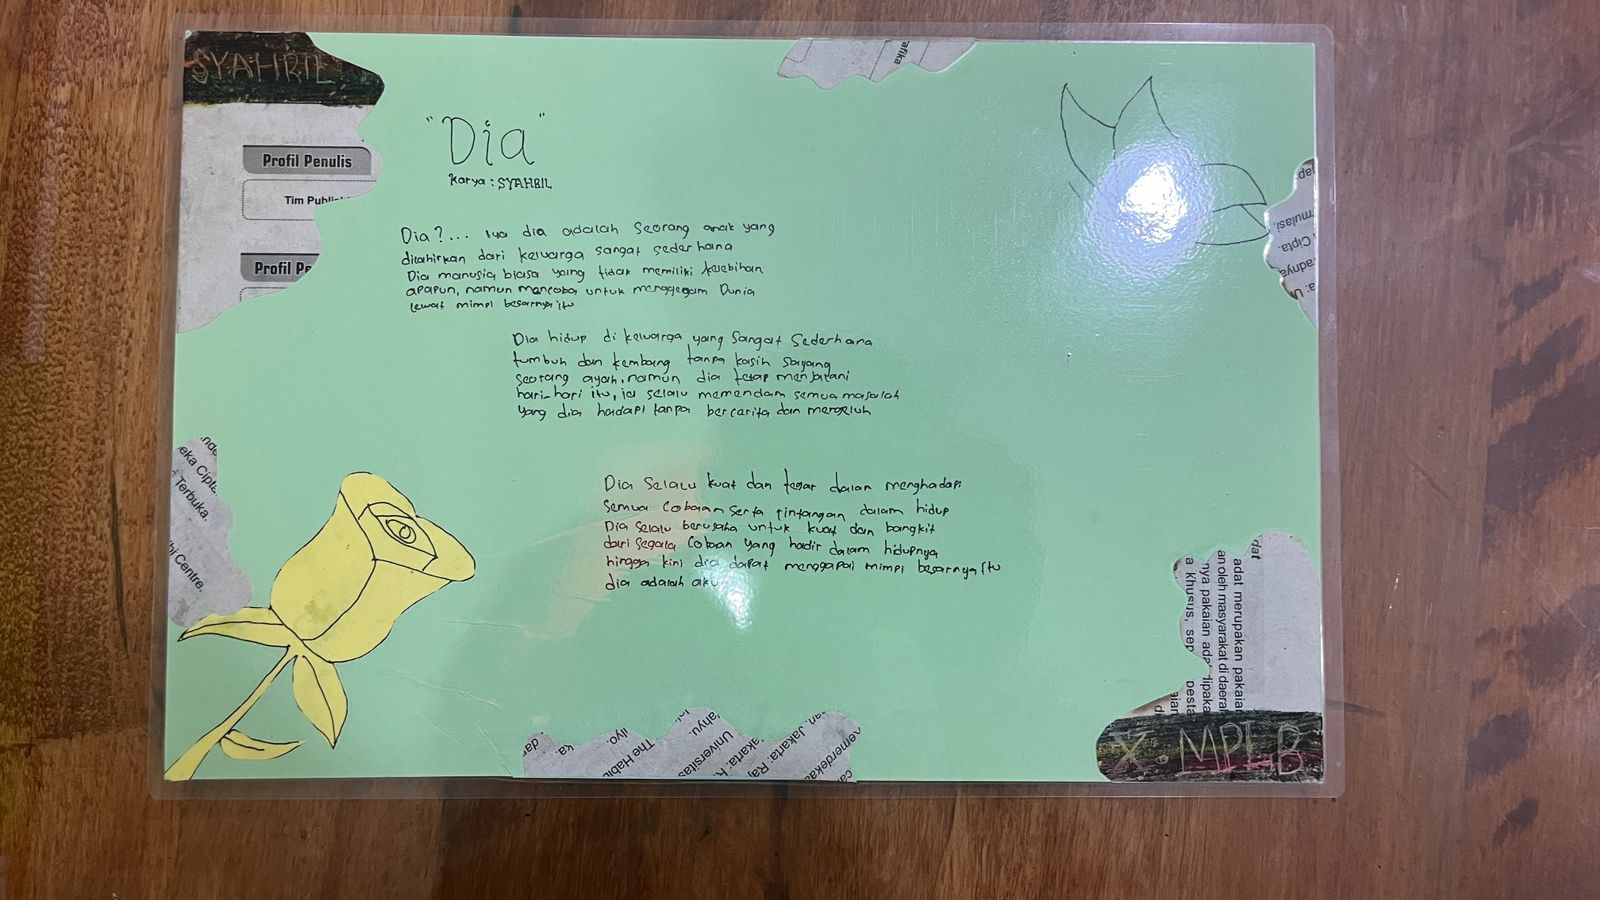 SYAHRIL
Profil Penulis
Tim Publi
Profil Pe
"Dia"
Karya : SYAHRIL
Dia?... iya dia adalah seorang anak yang
dilahirkan dari keluarga sangat sederhana
Dia manusia biasa yang tidak memiliki kelebihan
apapun, namun mencoba untuk menggegam Dunia
lewat mimpi besarnya itu
Dia hidup di keluarga yang Sangat Sederhana
tumbuh dan kembang tanpa kasih sayang
seorang ayah, namun dia tetap menjalani
hari-hari itu, ia selalu memendam semua masalah
yang dia hadapi tanpa bercerita dan mengeluh
Dia Selalu kuat dan tegar dalam menghadapi
semua cobaan serta rintangan dalam hidup
Dia selalu berusaha untuk kuat dan bangkit
dari segala Cobaan yang hadir dalam hidupnya
hingga kini dia dapat menggapai mimpi besarnya itu
dia adalah aku
afika
mulasi,
Cipta.
eka Cipta
Terbuka.
Centre.
The Habi
Universitas
Jakarta: Ra
dat
adat merupakan pakaian
an oleh masyarakat di daerah
nya pakaian ada dipaka
a khusus, sep pesta
X. MPLB